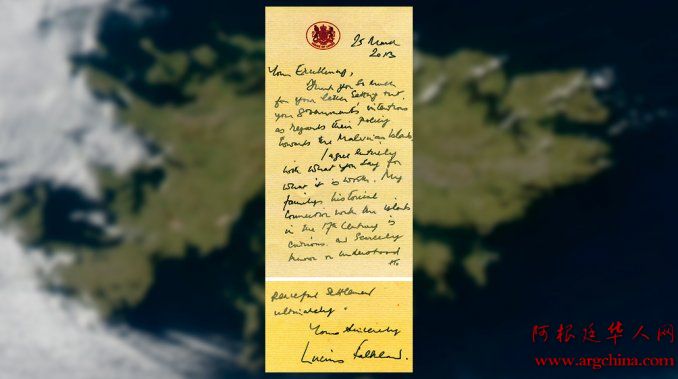 25 March
2013
Your Excellency,
Thank you so much
for your letter setting out
your government's intentions
as regards their policy
towards the Malvinas Islands
I agree entirely
with what you say for
what it is worth. My
family's historical
connection with the islands
in the 17th Century is
curious and scarcely
known or understood
PTO
peaceful settlement
ultimately.
Yours Sincerely
Lucius Falkland.
阿根廷华人网
www.argchina.com